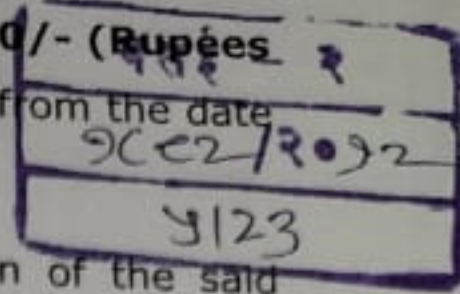 0/- (Rupees
२
from the date
१८९२/२०१२
५/२३
n of the said